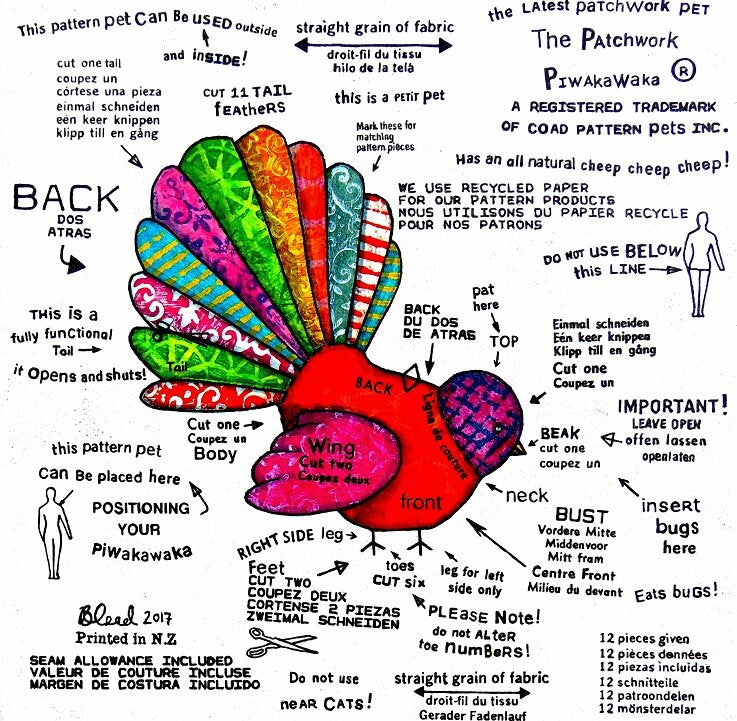 This pattern pet Can Be USED outside
and inSIDE!
straight grain of fabric
droit-fil du tissu
hilo de la telà
the LAtest PATCHWORK PET
The PAtchwork
PiwAkaWaka ®
A REGISTERED TRADEMARK
OF COAD PATTERN pets INC.
Has an all natural cheep cheep cheep!
cut one tail
coupez un
córtese una pieza
einmal schneiden
eén keer knippen
klipp till en gång
CUT 11 TAIL
feAtHeRS
this is a PETIT pet
Mark these for
matching
pattern pieces
WE USE RECYCLED PAPER
FOR OUR PATTERN PRODUCTS
NOUS UTILISONS DU PAPIER RECYCLE
POUR NOS PATRONS
BACK
DOS
ATRAS
DO NOT USE BELOW
this LINE
THis is a
fully funCtional
Tail
it Opens and shuts!
Tail
BACK
DU DOS
DE ATRAS
pat
here
TOP
Einmal schneiden
Eén keer knippen
Klipp till en gång
Cut one
Coupez un
BACK
Ligne de couture
Cut one
Coupez un
BODY
Wing
Cut two
Coupez deux
front
BEAK
cut one
coupez un
IMPORTANT!
LEAVE OPEN
offen lassen
openlaten
this pattern pet
Can Be placed here
POSITIONING
YOUR
PiWakawaka
neck
BUST
Vordere Mitte
Middenvoor
Mitt fram
Centre Front
Milieu du devant
inseRt
bugs
here
Eats buGS!
RIGHT SIDE leg
Feet
CUT TWO
COUPEZ DEUX
CORTENSE 2 PIEZAS
ZWEIMAL SCHNEIDEN
toes
CUT SIX
leg for left
side only
PLEASE Note!
do not ALteR
toe numBeRS!
Blead 2017
Printed in N.Z
SEAM ALLOWANCE INCLUDED
VALEUR DE COUTURE INCLUSE
MARGEN DE COSTURA INCLUIDO
Do not use
neAR CATS!
straight grain of fabric
droit-fil du tissu
Gerader Fadenlauf
12 pieces given
12 pièces données
12 piezas incluidas
12 schnitteile
12 patroondelen
12 mönsterdelar